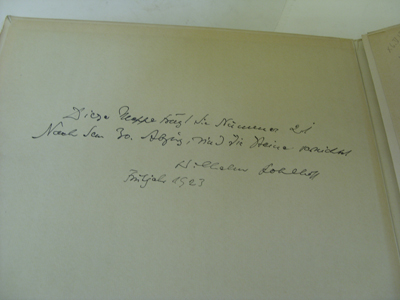 Diese Mappe trägt die Nummer 21
Nach dem 30. Abzug sind die Steine vernichtet
Wilhelm
Frühjahr 1923